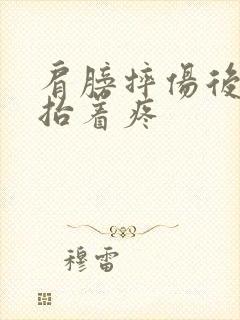 肩膀摔傷後
抬着疼
穆雷